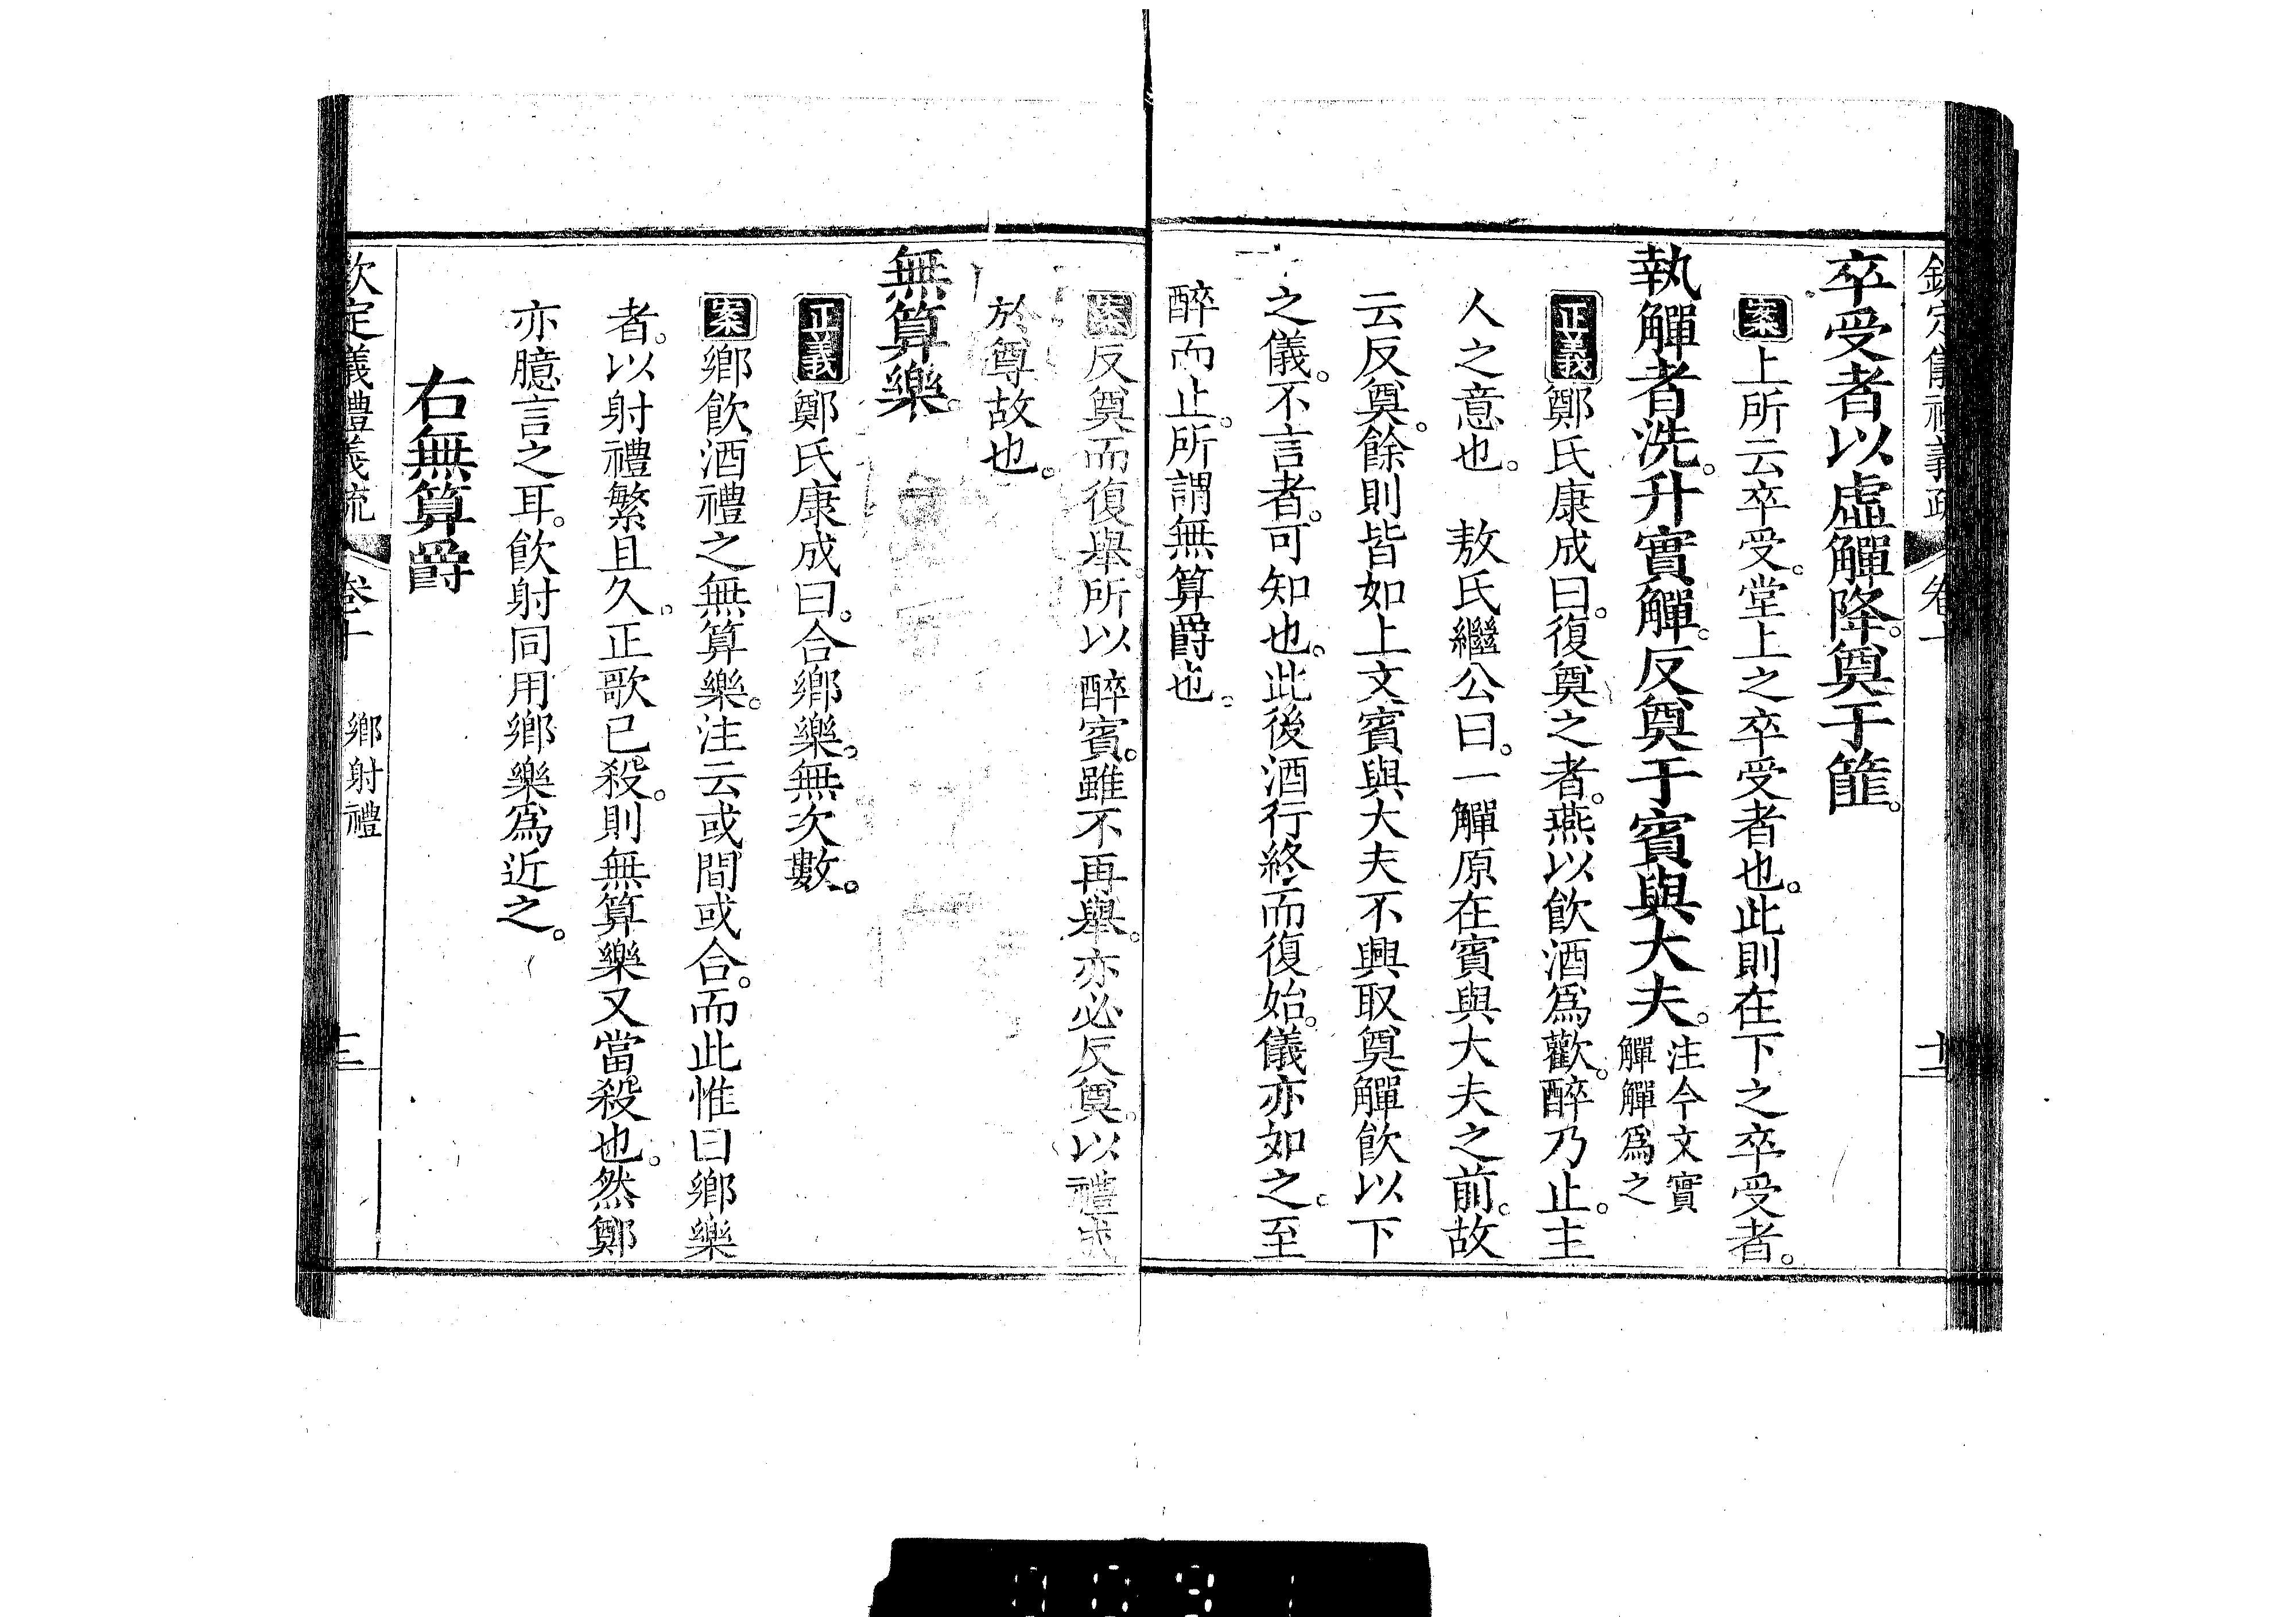 卒受者以虛觶降。奠于篚。
案上所云卒受。堂上之卒受者也。此則在下之卒受者。
執觶者洗。升實觶。反奠于賓與大夫。注今文實
觶觶爲之
正義鄭氏康成曰。復奠之者。燕以飮酒爲歡。醉乃止。主
人之意也。 敖氏繼公曰。一觶原在賓與大夫之前。故
云反奠。餘則皆如上文賓與大夫不興取奠觶飮以下
之儀。不言者。可知也。此後酒行終而復始。儀亦如之。至
醉而止。所謂無算爵也。
案反奠而復舉。所以醉賓。雖不再舉。亦必反奠。以禮成
於尊故也。
無算樂。
正義鄭氏康成曰。合鄉樂。無次數。
案鄉飮酒禮之無算樂。注云或間或合。而此惟曰鄉樂
者。以射禮繁且久。正歌已殺。則無算樂又當殺也。然鄭
亦臆言之耳。飮射同用鄉樂爲近之。
右無算爵
欽定儀禮義疏 卷十 鄉射禮